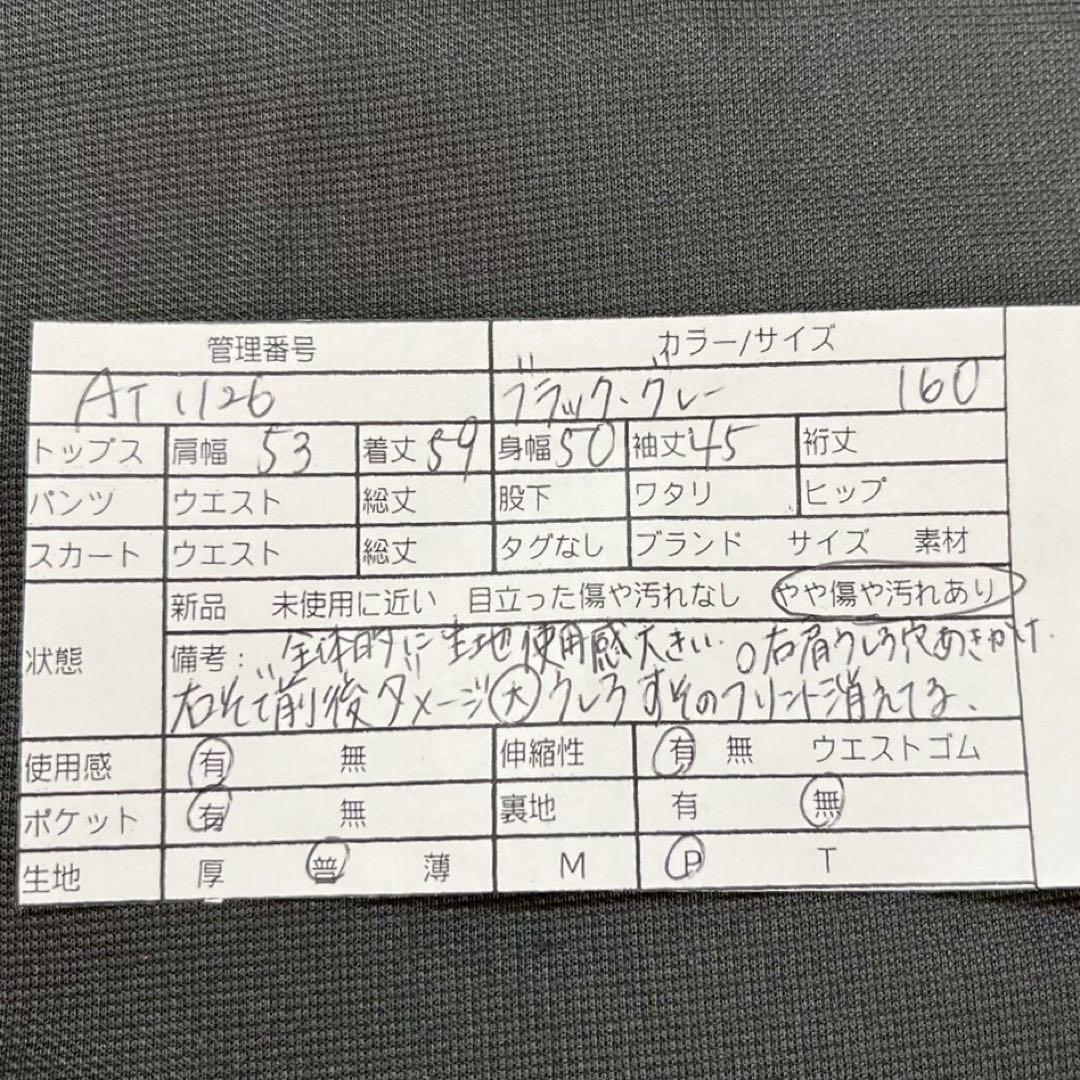 管理番号 カラー/サイズ
AT1126 ブラック、グレー 160
トップス 肩幅 53 着丈 59 身幅 50 袖丈 45 裄丈
パンツ ウエスト 総丈 股下 ワタリ ヒップ
スカート ウエスト 総丈 タグなし ブランド サイズ 素材
新品 未使用に近い 目立った傷や汚れなし やや傷や汚れあり
状態 備考: 全体的に生地使用感大きい。右肩うしろ穴あきかけ.
右そで前後ダメージ大 うしろすそのプリント消えてる、
使用感 有 無 伸縮性 有 無 ウエストゴム
ポケット 有 無 裏地 有 無
生地 厚 普 薄 M P T